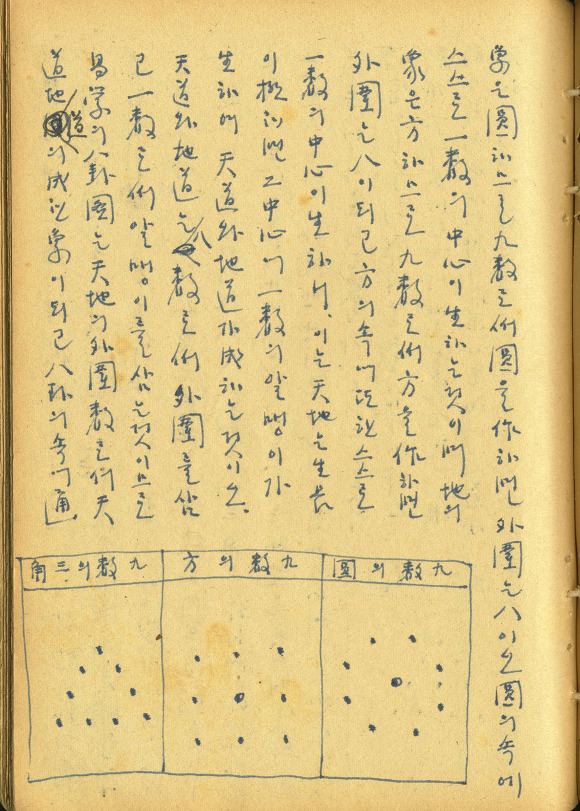 象은 圓하므로 九數로써 圓을 作하면 外圍는 八이오 圓의 속에
스스로 一數의 中心이 生하는 것이며 地의
象은 方하므로 九數로써 方을 作하면
外圍는 八이 되고 方의 속에 또한 스스로
一數의 中心이 生하니, 이는 天地는 生長
이 極하면 그 中心에 一數의 알맹이가
生하며 天道와 地道가 成하는 것이오.
天道와 地道는 八數로써 外圍를 삼
고 一數로써 알맹이를 삼는 것이므로
易學의 八卦圖는 天地의 外圍數로써 天
道地道의 成한 象이 되고 八卦의 속에 通
九數의 圓
九數의 方
九數의 三角